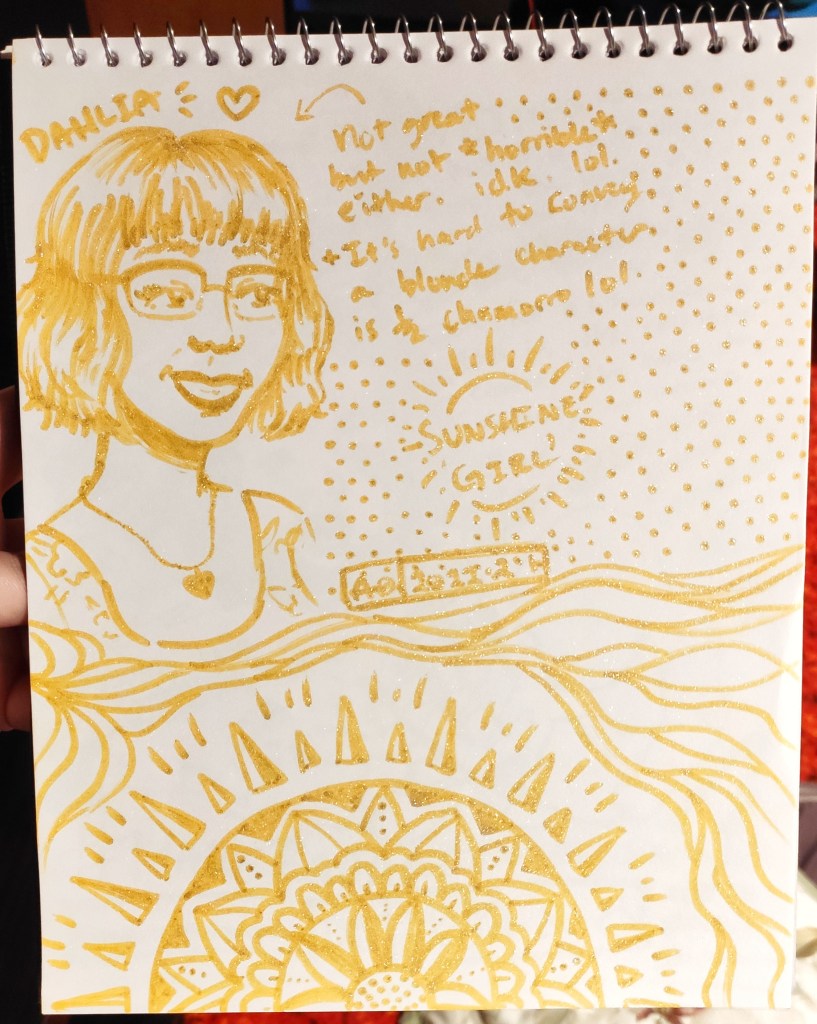 DAHLIA
Not great
but not *horrible*
either. idk. lol.
+ It's hard to convey
a blonde character
is ½ chamorro lol.
SUNSHINE
GIRL